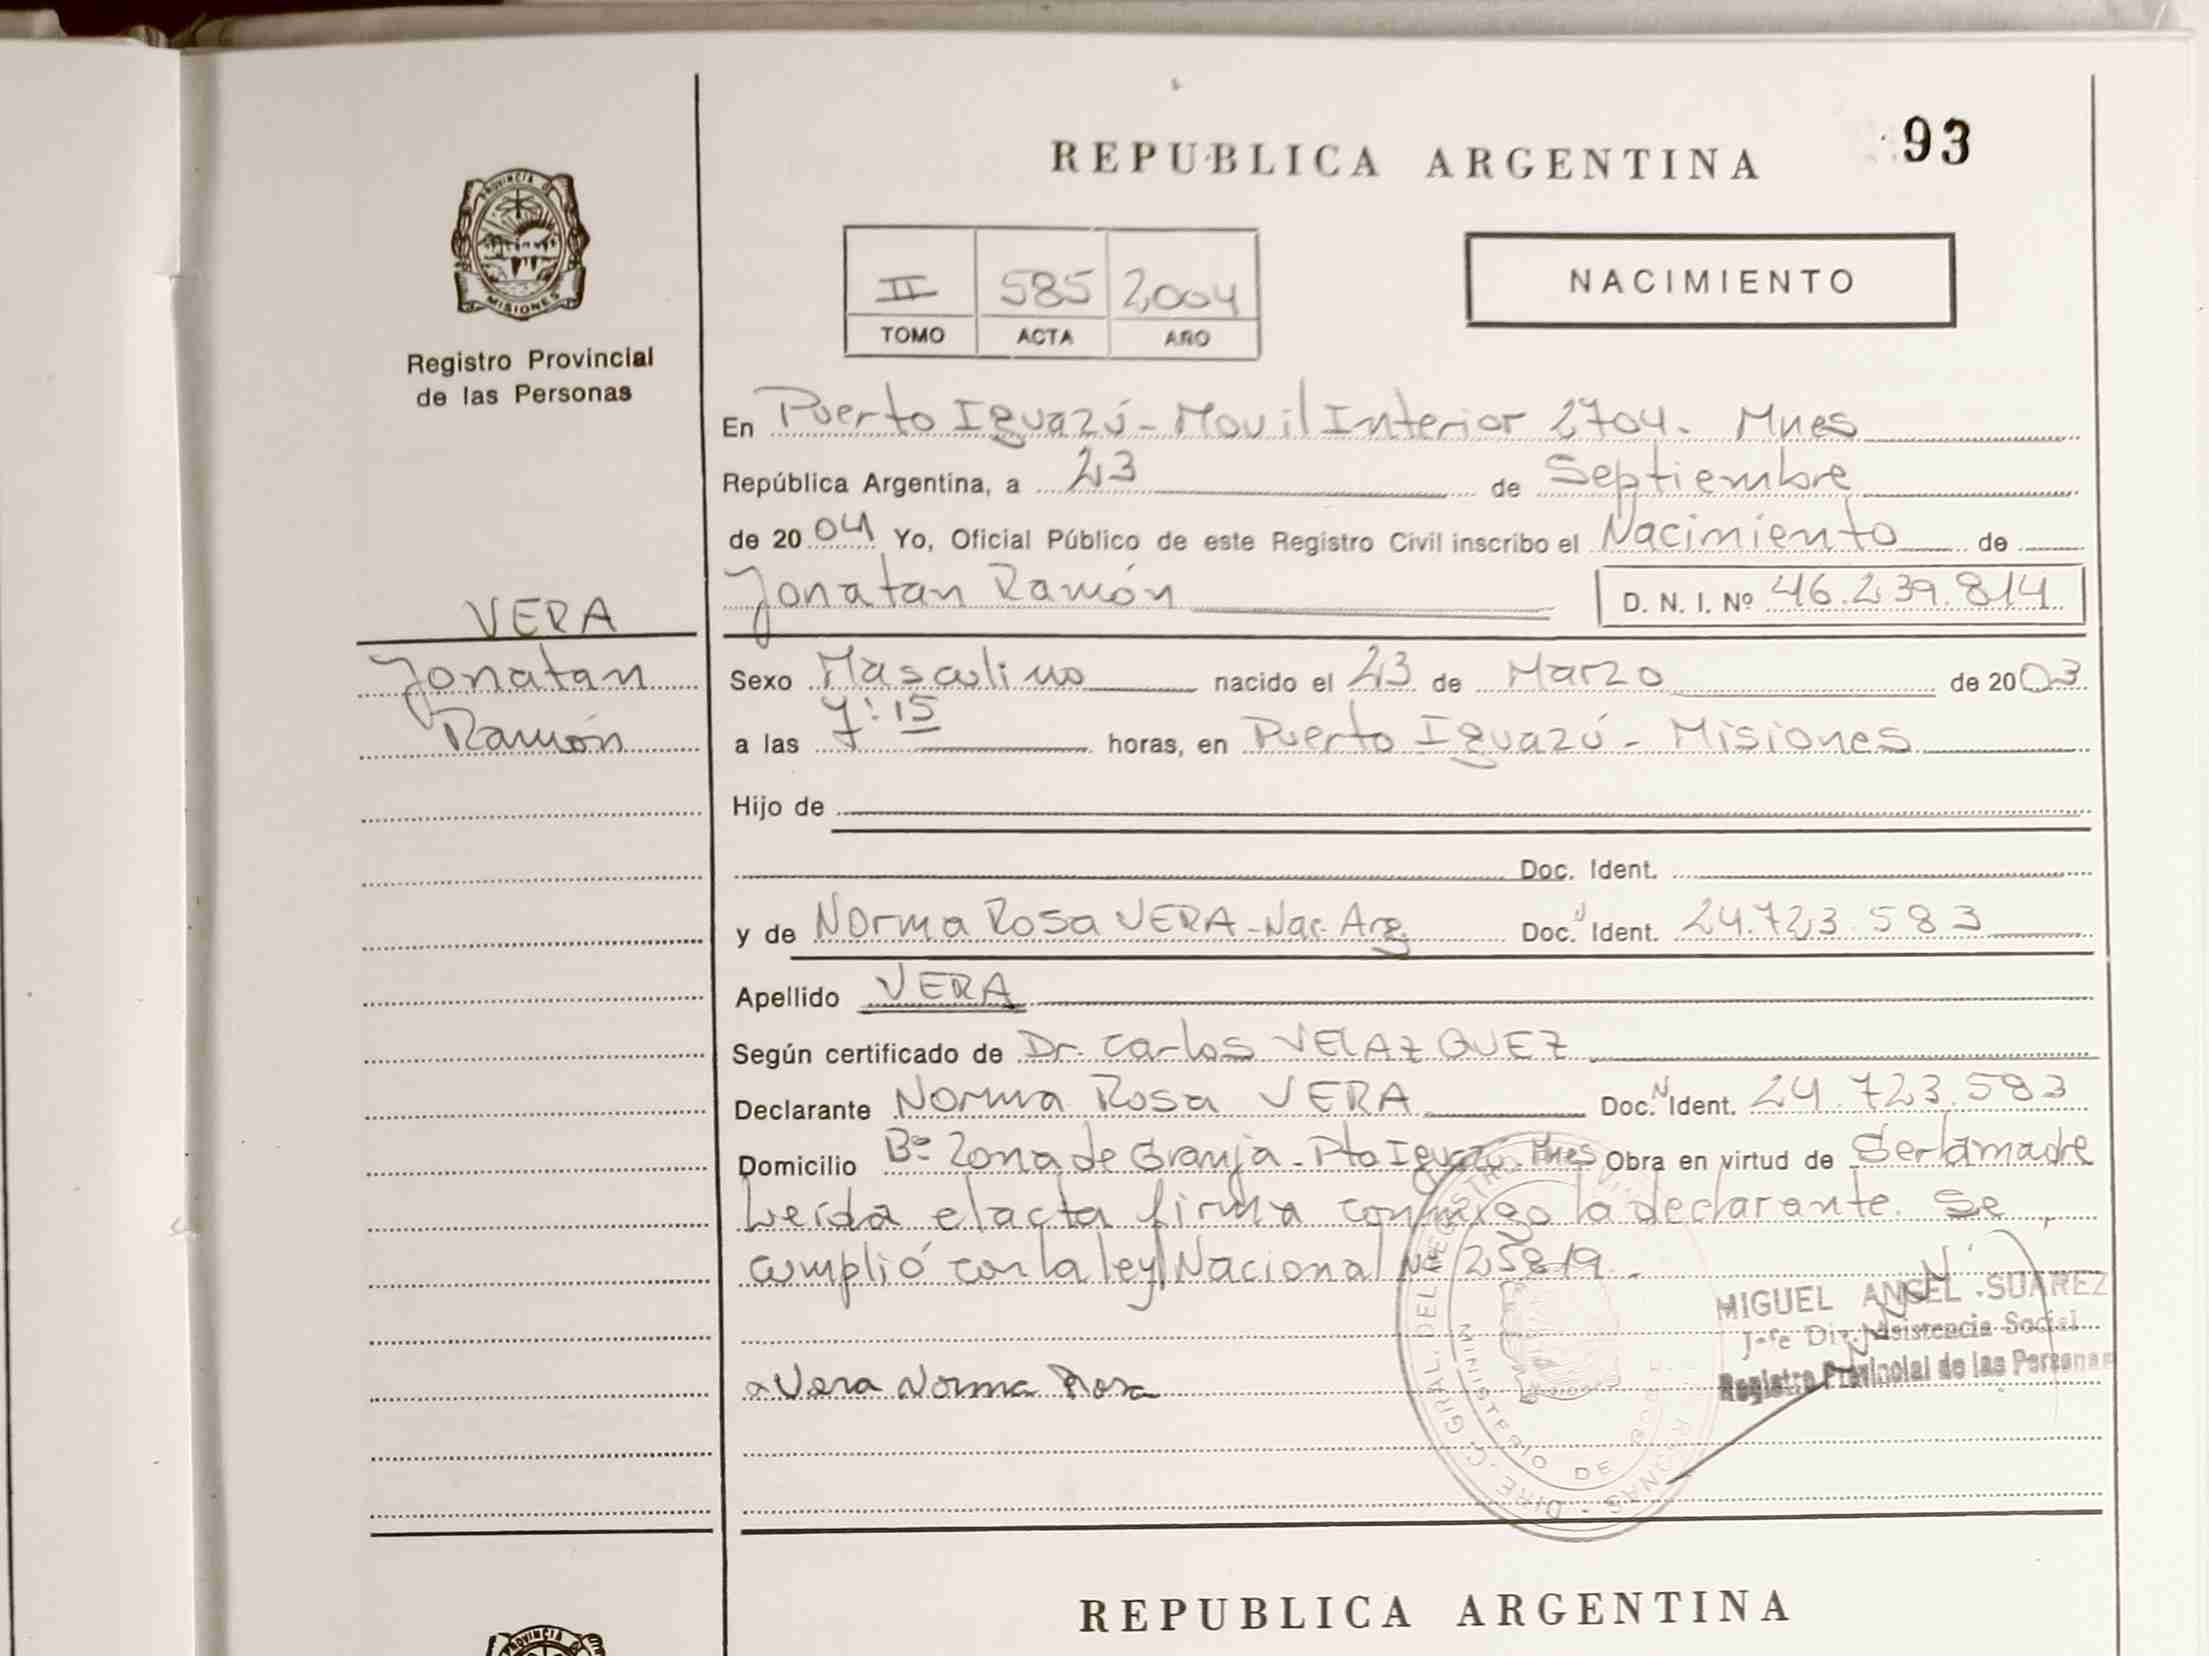 REPUBLICA ARGENTINA 93
PROVINCIA DE
MISIONES
Registro Provincial
de las Personas
II 585 2004
TOMO ACTA AÑO
NACIMIENTO
En Puerto Iguazú - Movil Interior 2704. Mnes
República Argentina, a 23 de Septiembre
de 2004 Yo, Oficial Público de este Registro Civil inscribo el Nacimiento de
Jonatan Ramón D. N. I. Nº 46.239.814
VERA
Jonatan
Ramón
Sexo Masculino nacido el 23 de Marzo de 2003
a las 7:15 horas, en Puerto Iguazú - Misiones
Hijo de
Doc. Ident.
y de Norma Rosa VERA - Nac. Arg. Doc. Ident. 24.723.583
Apellido VERA
Según certificado de Dr. Carlos VELAZQUEZ
Declarante Norma Rosa VERA Doc. N Ident. 24.723.583
Domicilio Bº Zona de Granja - Pto Iguazú. Mnes Obra en virtud de Ser la madre
Leída el acta firma conmigo la declarante. Se
cumplió con la ley Nacional Nº 25819.
MIGUEL ANGEL SUAREZ
Jefe Div. Asistencia Social
Registro Provincial de las Personas
x Vera Norma Rosa
DIRE. C. GRAL. DEL REGISTRO
MINISTERIO DE
REPUBLICA ARGENTINA
PROVINCIA